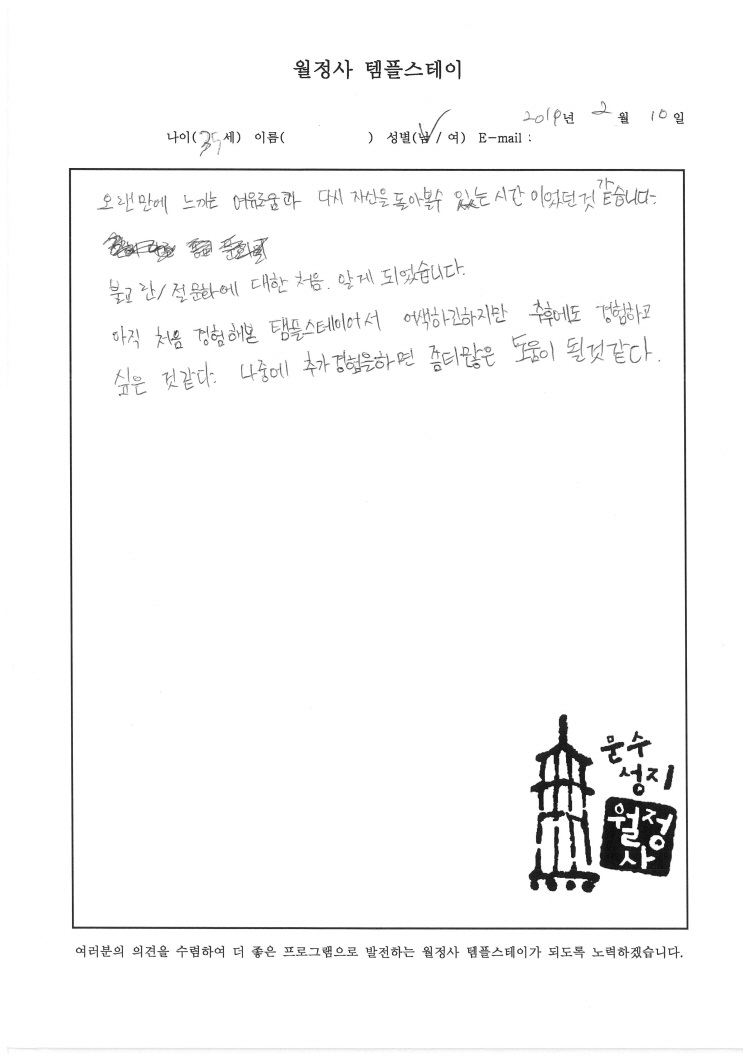 월정사 템플스테이
2019년 2월 10일
나이(35세) 이름( ) 성별(남/여) E-mail :
오랜만에 느끼는 여유로움과 다시 자신을 돌아볼수 있는 시간 이었던것 같습니다.
불교란/절문화에 대한 처음. 알게 되었습니다.
아직 처음 경험해본 탬플스테이어서 어색하긴하지만 추후에도 경험하고
싶은 것같다. 나중에 추가경험을하면 좀더많은 도움이 될것같다.
문수
성지
월정
사
여러분의 의견을 수렴하여 더 좋은 프로그램으로 발전하는 월정사 템플스테이가 되도록 노력하겠습니다.